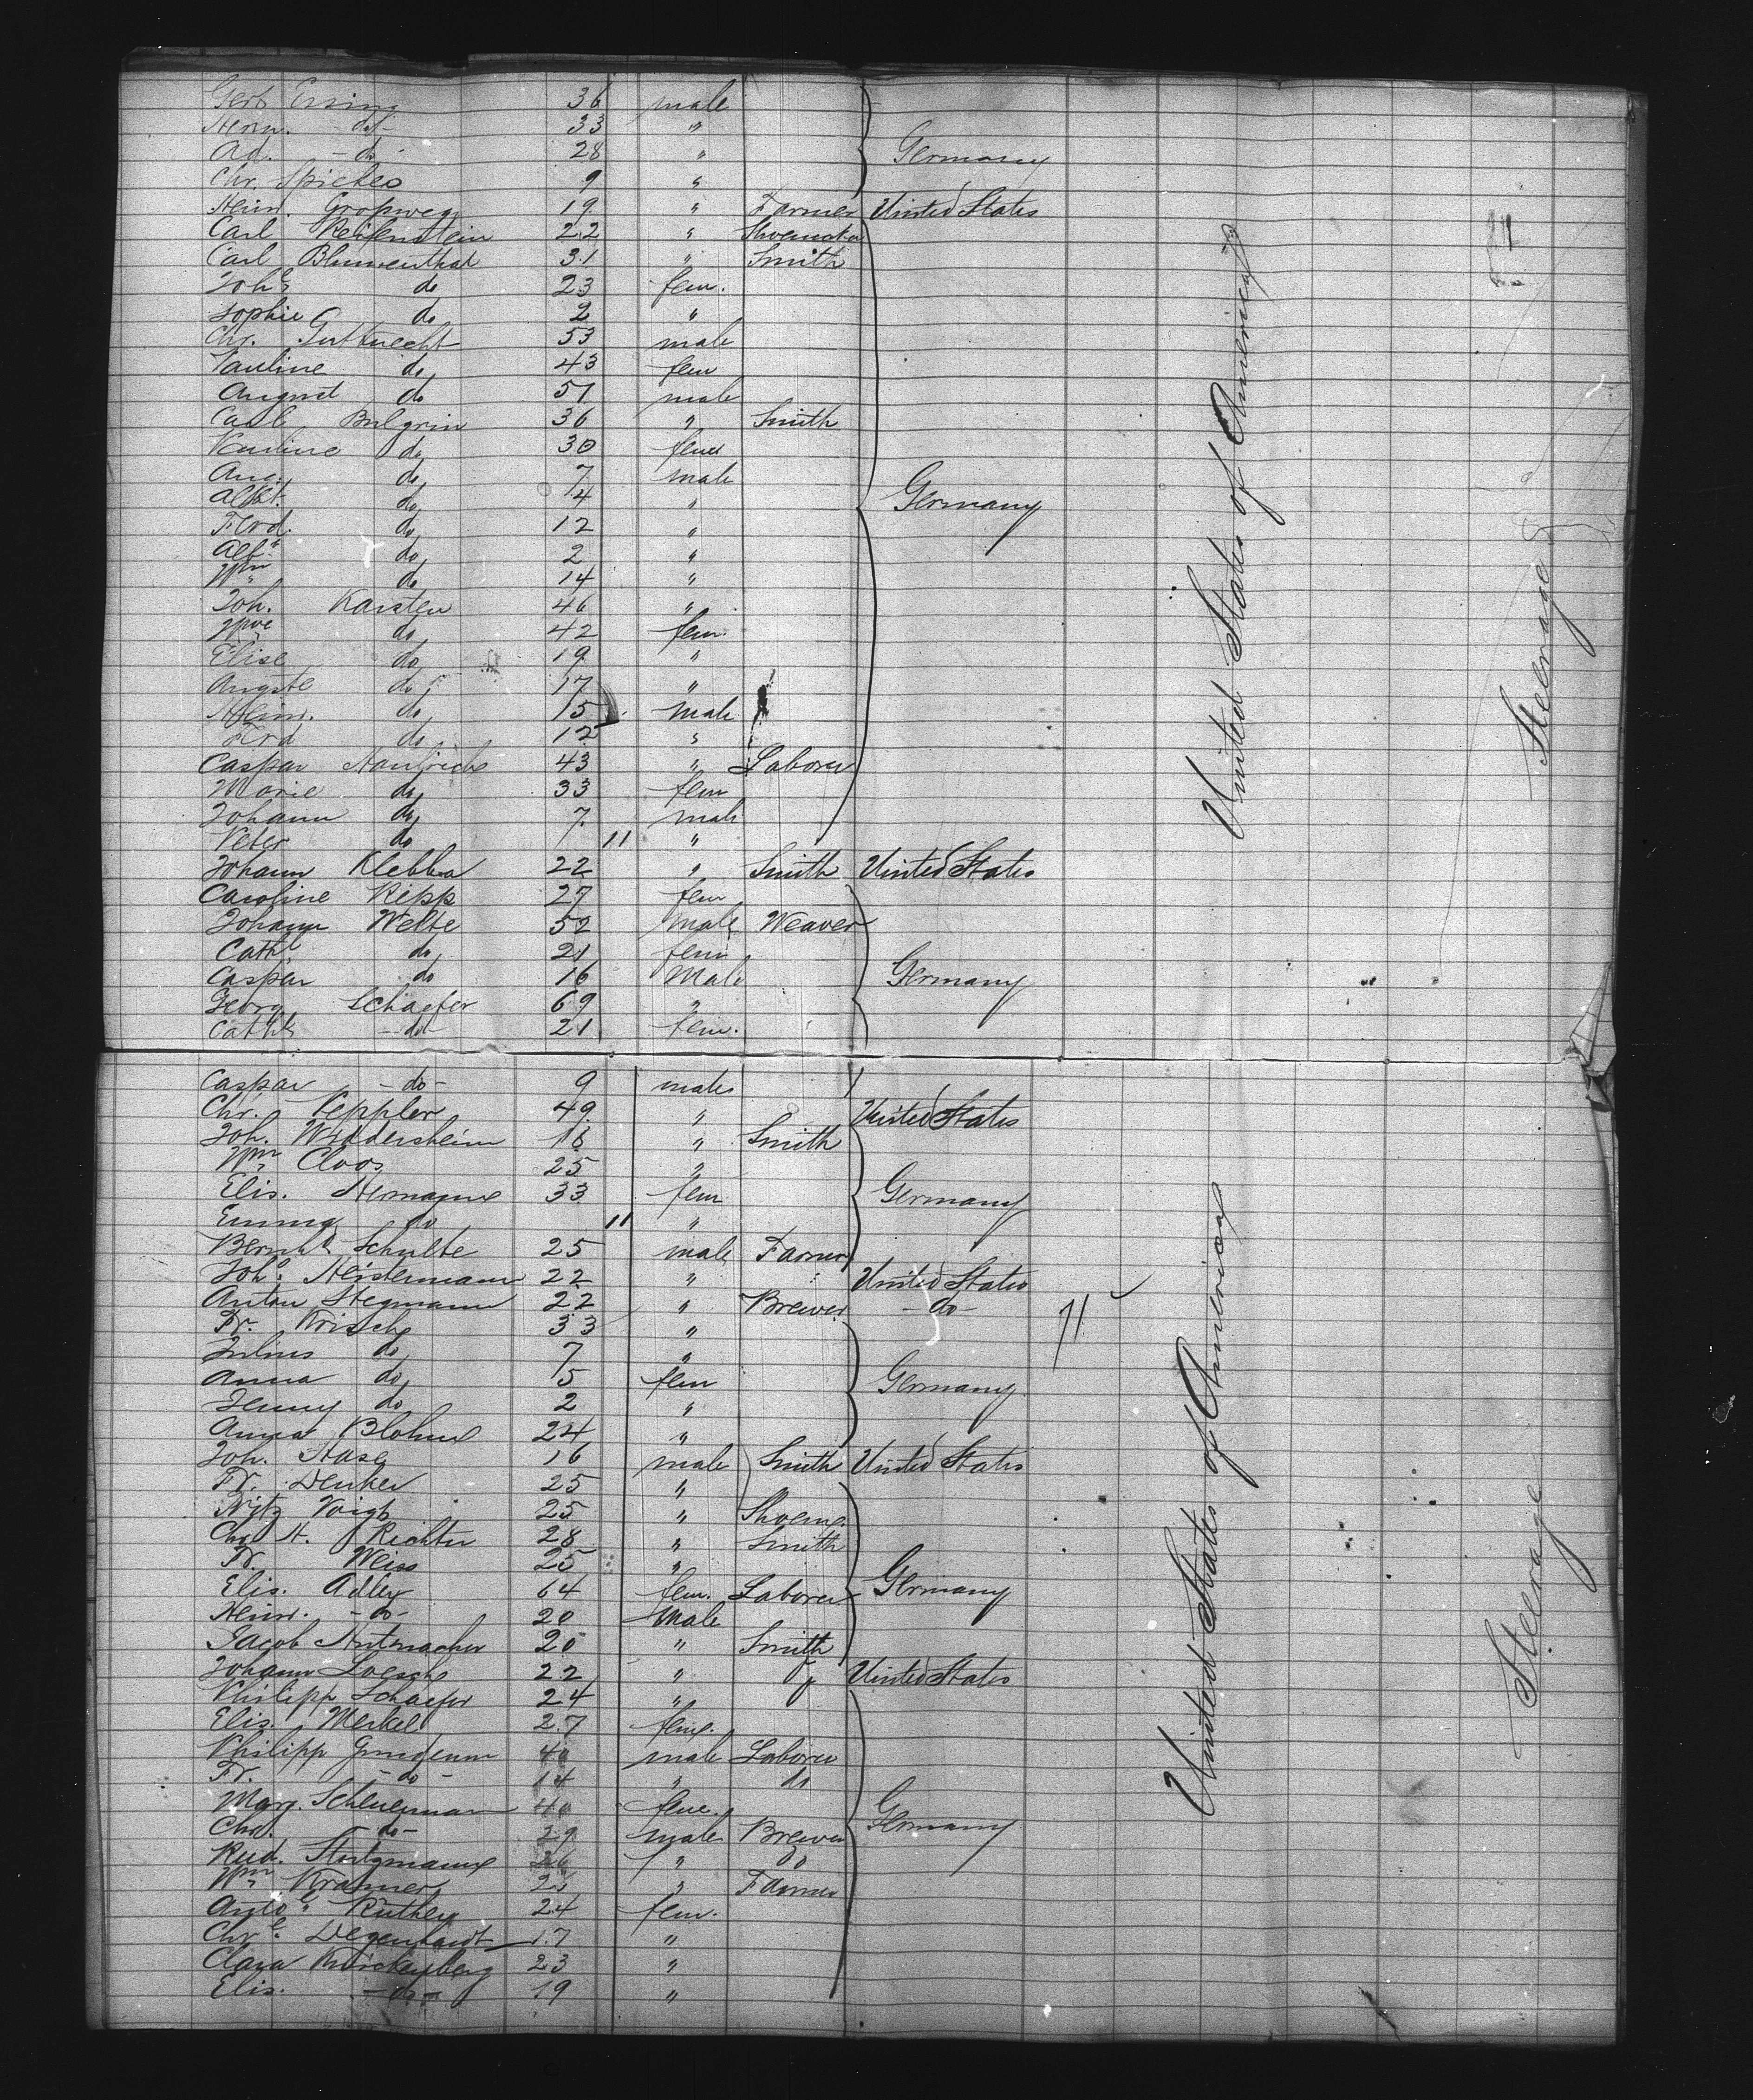 Gerb Ensing 36 male
Herm. do 33 "
Ad. - do - 28 " Germany
Chr. Spickes 9 "
Heinr. Gropweg 19 " Farmer United States
Carl Reifenstein 22 " Shoemaker
Carl Blumenthal 31 " Smith
Joh.e do 23 fem.
Sophie do 2 "
Chr. Gutknecht 53 male
Pauline do 43 fem
August do 51 male
Carl Bulgrin 36 " Smith
Pauline do 30 fem
Aug. do 7 male
Albt. do 4 " Germany
Ferd. do 12 "
Alb.t do 2 "
Wm do 14 "
Joh. Karsten 46 "
Wme do 42 fem.
Elise do 19 "
Auguste do 17 "
Heinr. do 15 male
Ferd do 12 "
Caspar 43 " Laborer
Marie do 33 fem
Johann do 7 male
Peter do 11 "
Johann Klebba 22 " Smith United States
Caroline Kepp 27 fem
Johann Welte 52 male Weaver
Cath.e do 21 fem
Caspar do 16 Male Germany
Georg Schaefer 69 "
Cathe -do- 21 fem.
United States of America
Steerage
Caspar -do- 9 male
Chr. Keppler 49 " United States
Joh. Widdersheim 18 " Smith
Wm Cloos 25 "
Elis. Hermann 33 fem Germany
Emma do 11 "
Bernhd Schulte 25 male Farmer
Johs. Heistermann 22 " United States
Anton Stegmann 22 " Brewer -do-
Fr. Krische 33 "
Julius do 7 "
Anna do 5 fem Germany
Jenny do 2 "
Anna Blohm 24 "
Joh. Hase 16 male Smith United States
Fr. Denker 25 "
Fritz Voigt 25 " Shoema.
Chr. H. Richter 28 " Smith
Fr. Weiss 25 "
Elis. Adley 64 fem. Laborer Germany
Heinr. -do- 20 Male
Jacob Hutmacher 20 " Smith
Johann Loesch 22 " United States
Philipp Schaefer 24 "
Elis. Merkel 27 fem.
Philipp 40 male Laborer
Fr. -do- 14 " do
Marg. Scheuermann 40 fem.
Chr. -do- 29 male Brewer Germany
Rud. 26 " do
Wm Kramer " Farmer
Anto.e Ruthey 24 fem.
Chr.e Degenhardt 17 "
Clara 23 "
Elis. -do- 19 "
71
United States of America
Steerage